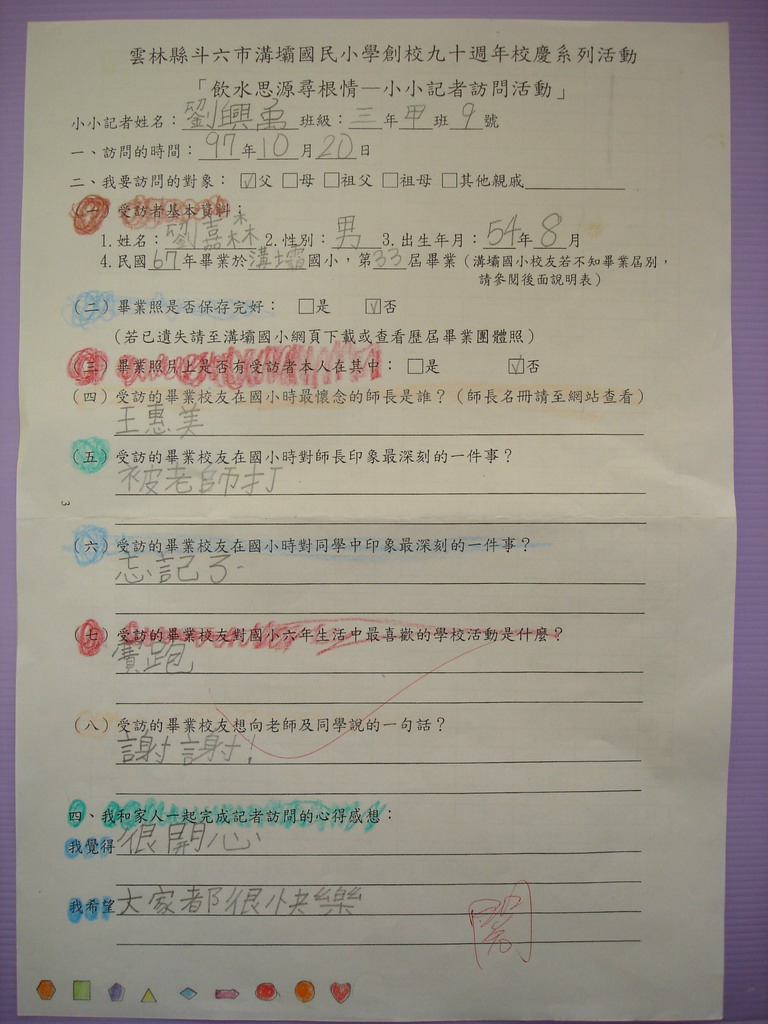 雲林縣斗六市溝壩國民小學創校九十週年校慶系列活動
「飲水思源尋根情—小小記者訪問活動」
小小記者姓名：劉興禹 班級：三年甲班 9 號
一、訪問的時間：97年10月20日
二、我要訪問的對象：☑父 □母 □祖父 □祖母 □其他親戚
（一）受訪者基本資料：
1.姓名：劉嘉森 2.性別：男 3.出生年月：54年8月
4.民國67年畢業於溝壩國小，第33屆畢業（溝壩國小校友若不知畢業屆別，
請參閱後面說明表）
（二）畢業照是否保存完好：□是 ☑否
（若已遺失請至溝壩國小網頁下載或查看歷屆畢業團體照）
（三）畢業照片上是否有受訪者本人在其中：□是 ☑否
（四）受訪的畢業校友在國小時最懷念的師長是誰？（師長名冊請至網站查看）
王惠美
（五）受訪的畢業校友在國小時對師長印象最深刻的一件事？
被老師打
3
（六）受訪的畢業校友在國小時對同學中印象最深刻的一件事？
忘記了
（七）受訪的畢業校友對國小六年生活中最喜歡的學校活動是什麼？
賽跑
（八）受訪的畢業校友想向老師及同學說的一句話？
謝謝！
四、我和家人一起完成記者訪問的心得感想：
我覺得很開心
我希望大家都很快樂